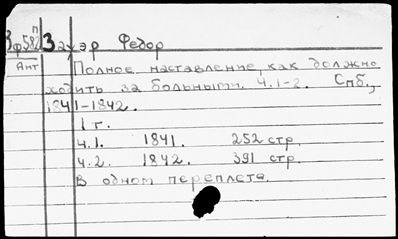 П
Зф582 Зауэр Федор
Ант
Полное наставление, как должно
ходить за больными. Ч.1-2. Спб.,
1841-1842.
1 г.
Ч.1. 1841. 252 стр.
Ч.2. 1842. 391 стр.
В одном переплете.